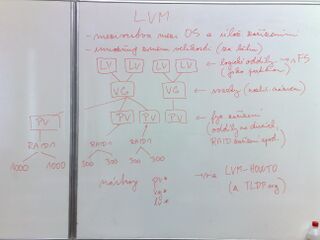 LVM
- mezivrstva mezi OS a úlož. zařízeními
- umožňuj změnu velikosti (za běhu)
LV LV LV LV logické oddíly → FS
(jako partition)
VG VG svazky
PV PV PV fyz. zařízení
oddíly na discích,
RAID zařízení apod.
PV
RAID1
1000 1000
RAID1
500 500
500 500
nástroj pv*
vg*
lv*
→ viz LVM-HOWTO
(a TLDP.org)